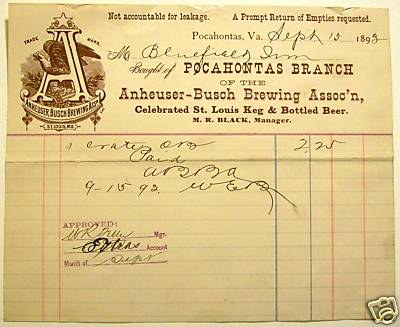 Not accountable for leakage. A Prompt Return of Empties requested.
TRADE MARK.
A
ANHEUSER-BUSCH BREWING ASS'N
ST. LOUIS, MO.
Pocahontas, Va. Sept 15 1892
M Bluefield Inn
Bought of POCAHONTAS BRANCH
OF THE
Anheuser-Busch Brewing Assoc'n,
Celebrated St. Louis Keg & Bottled Beer.
M. R. BLACK, Manager.
1 Crate 2.25
Paid
9-15 92
APPROVED:
Mgr.
Account
Month of Sept
eBay